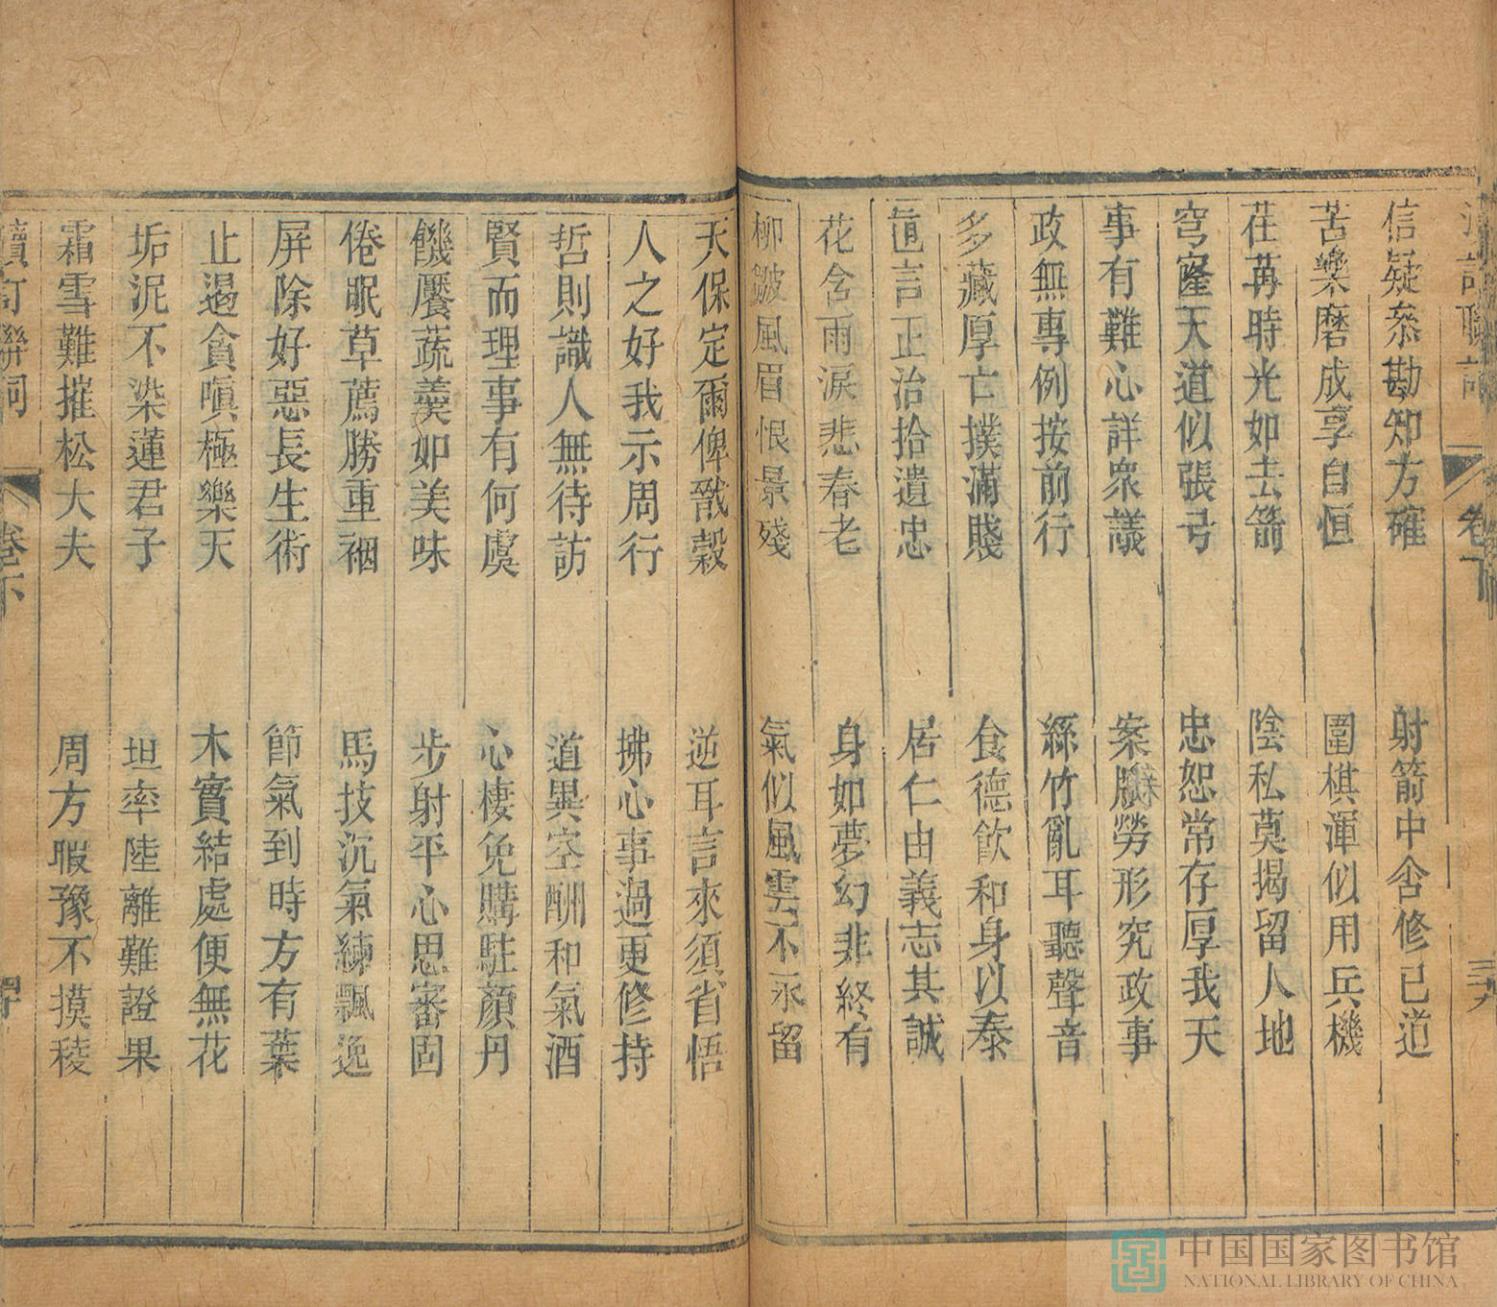 信疑叅勘知方確　射箭中舍修已道
苦樂磨成享自恒　圍棋渾似用兵機
荏苒時光如去箭　陰私莫揭留人地
穹窿天道似張弓　忠恕常存厚我天
事有難心詳衆議　案牘勞形究政事
政無專例按前行　絲竹亂耳聽聲音
多藏厚亡撲滿賤　食德飲和身以泰
直言正治拾遺忠　居仁由義志其誠
花含雨淚悲春老　身如夢幻非終有
柳皺風眉恨景殘　氣似風雲不永留
天保定爾俾戩穀　逆耳言來須省悟
人之好我示周行　拂心事過更修持
哲則識人無待訪　道異空酬和氣酒
賢而理事有何虞　心棲免購駐顏丹
饑饜蔬羮如美味　步射平心思審固
倦眠草薦勝重裀　馬技沉氣練飄逸
屏除好惡長生術　節氣到時方有葉
止遏貪嗔極樂天　木實結處便無花
垢泥不染蓮君子　坦率陸離難證果
霜雪難摧松大夫　周方暇豫不摸稜
續訂聯詞　卷下　四十
卷下　三十九
中国国家图书馆
NATIONAL LIBRARY OF CHINA